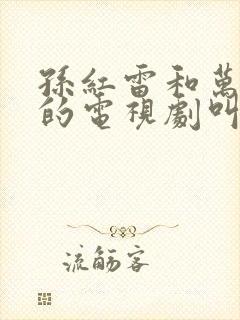 孫紅雷和萬
的電視劇叫
流觞客